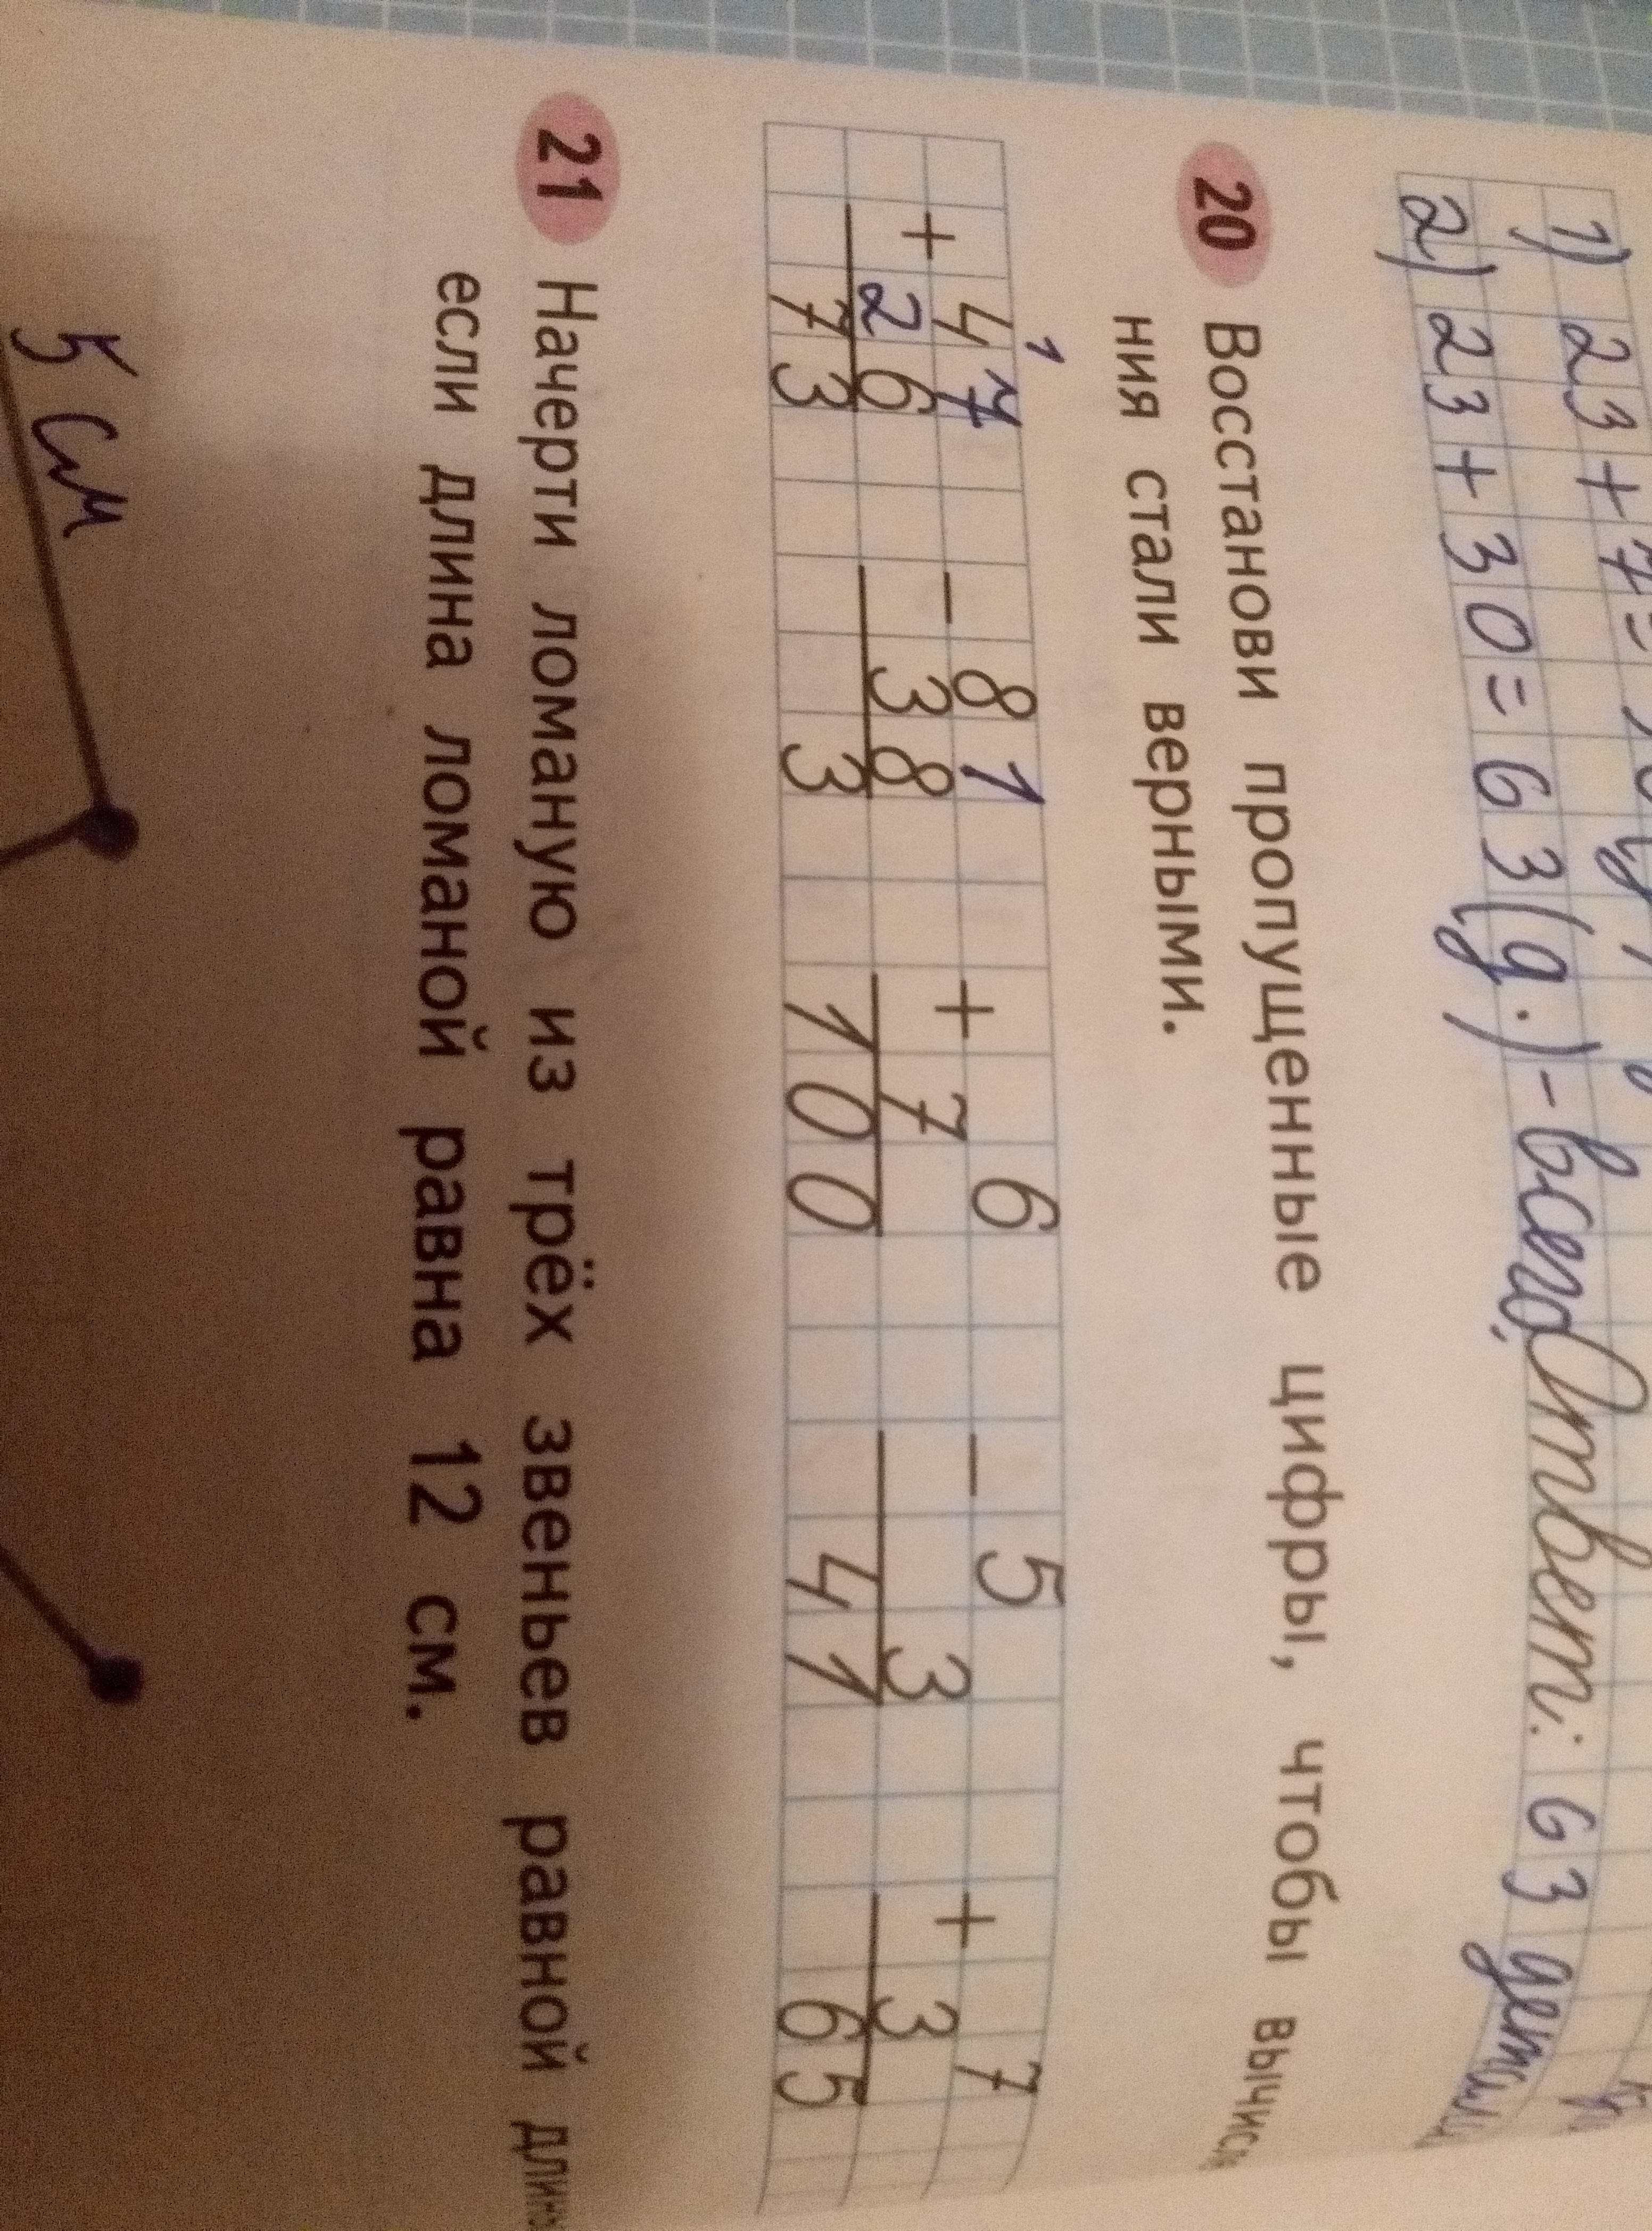 1) 23 + 7 =
2) 23 + 30 = 63 (д.) - всего, Ответ: 63
20 Восстанови пропущенные цифры, чтобы
ния стали верными.
1
+ 47 - 81 + 6 - 5 + 7
26 38 7 3 3
73 3 100 41 65
21 Начерти ломаную из трёх звеньев равной
если длина ломаной равна 12 см.
5 см